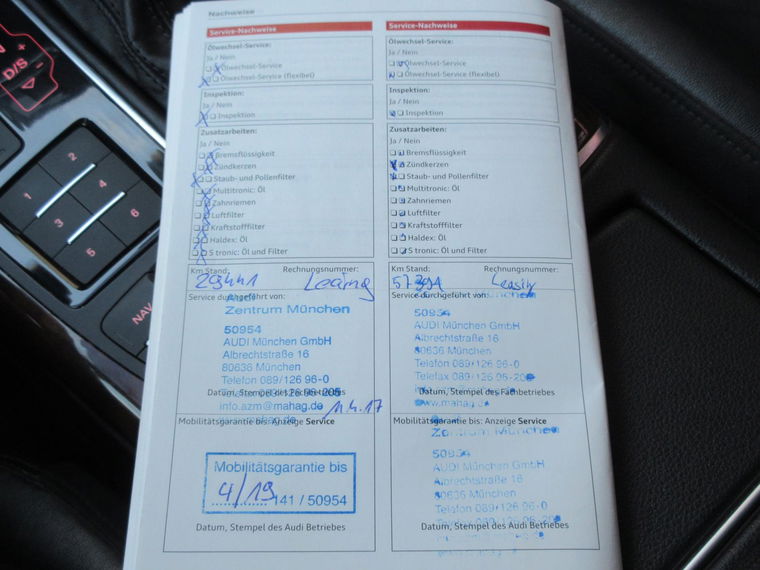 Nachweise
Service-Nachweise
Ölwechsel-Service:
Ja / Nein
Ölwechsel-Service
Ölwechsel-Service (flexibel)
Inspektion:
Ja / Nein
Inspektion
Zusatzarbeiten:
Ja / Nein
Bremsflüssigkeit
Zündkerzen
Staub- und Pollenfilter
Multitronic: Öl
Zahnriemen
Luftfilter
Kraftstofffilter
Haldex: Öl
S tronic: Öl und Filter
Km Stand: Rechnungsnummer:
Leasing
Service durchgeführt von:
Zentrum München
50954
AUDI München GmbH
Albrechtstraße 16
80636 München
Telefon 089/126 96-0
Datum, Stempel des Fachbetriebes
info.azm@mahag.de 11.4.17
Mobilitätsgarantie bis: Anzeige Service
Mobilitätsgarantie bis
4/19 141 / 50954
Datum, Stempel des Audi Betriebes
Service-Nachweise
Ölwechsel-Service:
Ja / Nein
Ölwechsel-Service
Ölwechsel-Service (flexibel)
Inspektion:
Ja / Nein
Inspektion
Zusatzarbeiten:
Ja / Nein
Bremsflüssigkeit
Zündkerzen
Staub- und Pollenfilter
Multitronic: Öl
Zahnriemen
Luftfilter
Kraftstofffilter
Haldex: Öl
S tronic: Öl und Filter
Km Stand: Rechnungsnummer:
Leasing
Service durchgeführt von:
50954
AUDI München GmbH
Albrechtstraße 16
80636 München
Telefon 089/126 96-0
Telefax 089/126 96-205
Datum, Stempel des Fachbetriebes
www.mahag.de
Mobilitätsgarantie bis: Anzeige Service
Zentrum München
50954
AUDI München GmbH
Albrechtstraße 16
80636 München
Telefon 089/126 96-0
Datum, Stempel des Audi Betriebes
D/S
1
2
3
4
5
6
NAV